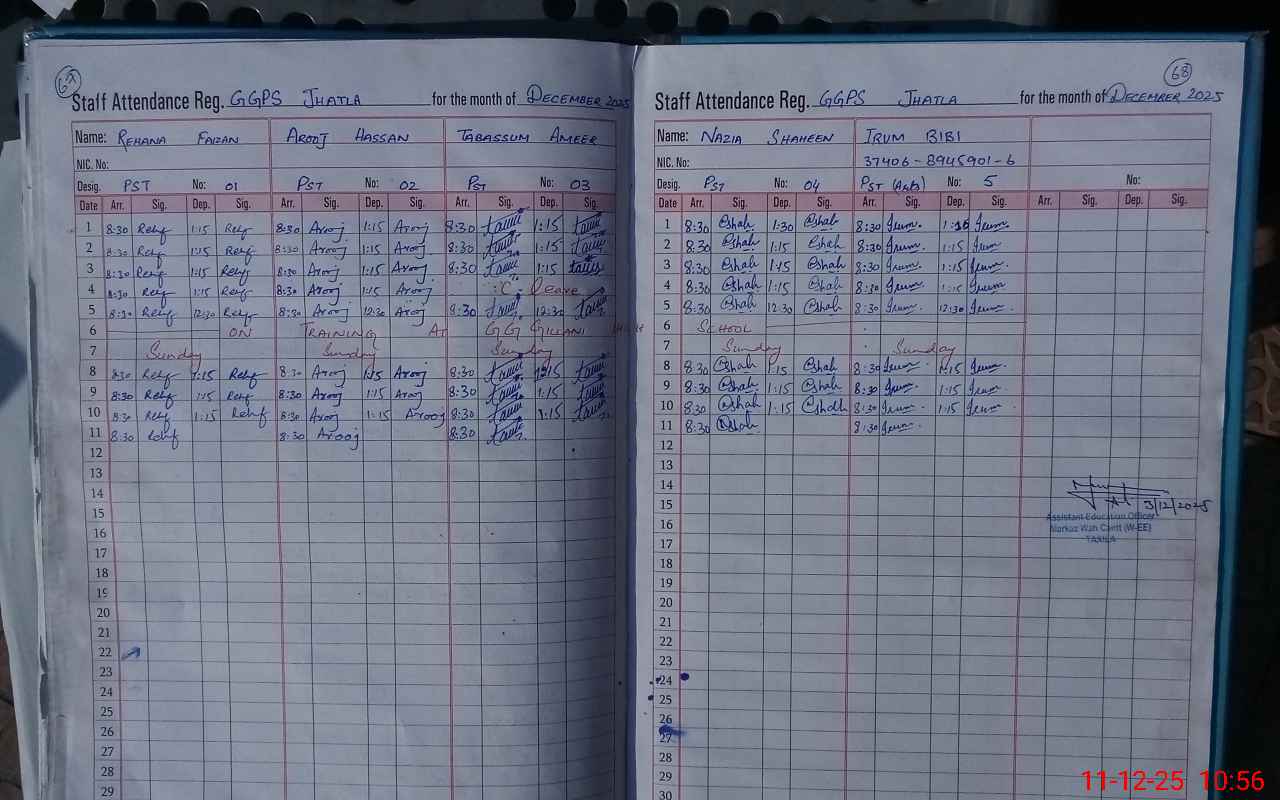 67
Staff Attendance Reg. GGPS JHATLA for the month of DECEMBER 2025
Name: REHANA FAIZAN AROOJ HASSAN TABASSUM AMEER
NIC. No:
Desig. PST No: 01 PST No: 02 PST No: 03
Date Arr. Sig. Dep. Sig. Arr. Sig. Dep. Sig. Arr. Sig. Dep. Sig.
1 8:30 1:15 8:30 Arooj 1:15 Arooj 8:30 1:15
2 8:30 1:15 8:30 Arooj 1:15 Arooj 8:30 1:15
3 8:30 1:15 8:30 Arooj 1:15 Arooj 8:30 1:15
4 8:30 1:15 8:30 Arooj 1:15 Arooj "C" Leave
5 8:30 12:30 8:30 Arooj 12:30 Arooj 8:30 12:30
6 ON TRAINING AT GG GILLANI
7 Sunday Sunday Sunday
8 8:30 1:15 8:30 Arooj 1:15 Arooj 8:30 1:15
9 8:30 1:15 8:30 Arooj 1:15 Arooj 8:30 1:15
10 8:30 1:15 8:30 Arooj 1:15 Arooj 8:30 1:15
11 8:30 8:30 Arooj 8:30
12
13
14
15
16
17
18
19
20
21
22
23
24
25
26
27
28
29
68
Staff Attendance Reg. GGPS JHATLA for the month of DECEMBER 2025
Name: NAZIA SHAHEEN IRUM BIBI
NIC. No: 37406-8945901-6
Desig. PST No: 04 PST (Arts) No: 5 No:
Date Arr. Sig. Dep. Sig. Arr. Sig. Dep. Sig. Arr. Sig. Dep. Sig.
1 8:30 Shah 1:30 Shah 8:30 Irum 1:15 Irum
2 8:30 Shah 1:15 Shah 8:30 Irum 1:15 Irum
3 8:30 Shah 1:15 Shah 8:30 Irum 1:15 Irum
4 8:30 Shah 1:15 Shah 8:30 Irum 1:15 Irum
5 8:30 Shah 12:30 Shah 8:30 Irum 12:30 Irum
6 SCHOOL
7 Sunday Sunday
8 8:30 Shah 1:15 Shah 8:30 Irum 1:15 Irum
9 8:30 Shah 1:15 Shah 8:30 Irum 1:15 Irum
10 8:30 Shah 1:15 Shah 8:30 Irum 1:15 Irum
11 8:30 Shah 8:30 Irum
12
13
14
15 3/12/2025
16 Assistant Education Officer
Markaz Wah Cantt (W-EE)
17 TAXILA
18
19
20
21
22
23
24
25
26
27
28
29
30
11-12-25 10:56